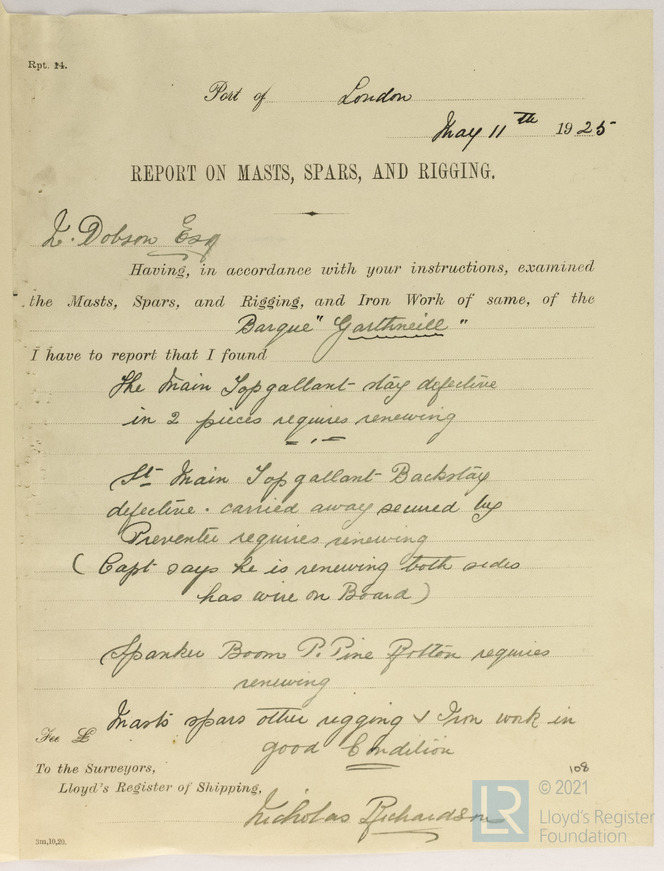 Rpt. 14.
Port of London
May 11th 1925
REPORT ON MASTS, SPARS, AND RIGGING.
L. Dobson Esq
Having, in accordance with your instructions, examined
the Masts, Spars, and Rigging, and Iron Work of same, of the
Barque "Garthneill"
I have to report that I found
The Main Topgallant stay defective
in 2 pieces requires renewing
St. Main Topgallant Backstay
defective. carried away secured by
Preventer requires renewing
( Capt says he is renewing both sides
has wire on Board )
Spanker Boom P. Pine Rotten requires
renewing
Masts spars other rigging & Iron work in
good Condition
Fee £
To the Surveyors,
Lloyd's Register of Shipping,
108
Nicholas Richardson
3m,10,20.
LR © 2021
Lloyd's Register
Foundation